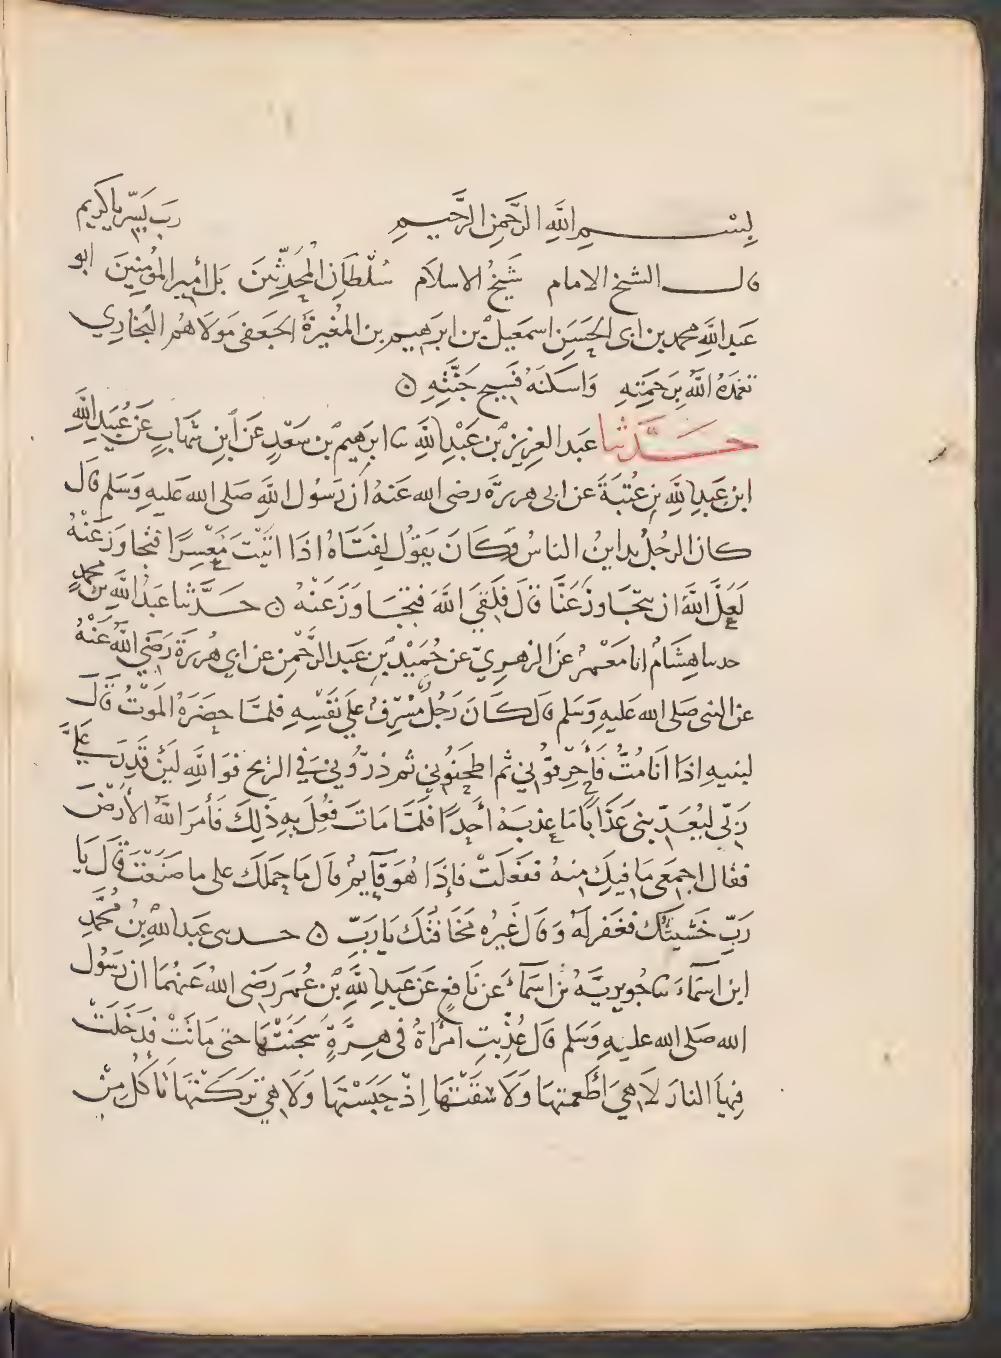 بِسْمِ اللَّهِ الرَّحْمَنِ الرَّحِيمِ رَب يَسِّر يا كريم
قال الشيخ الامام شَيْخُ الاسلام سُلْطَان المُحَدِّثِينَ بَل أمير المؤمِنِينَ ابو
عَبد اللَّهِ محمد بن ابى الحَسَنِ اسمَعيل بْن ابرهيم بن المُغيرة الجعفى مَولاهُم البُخَاري
تغمدَهُ اللَّهُ بِرَحْمَتِهِ وَاسكنَهُ فَسِيح جَنَّتِهِ ۞
حَدَّثنا عبد العزيز بْن عَبْدِ اللَّهِ ثنا ابرهيم بْن سَعْدٍ عَن ابنِ شِهَابٍ عَن عُبَيدِ اللَّهِ
ابن عَبدِ اللَّهِ بنِ عُتبَةَ عَن ابى هريرَة رضى الله عَنهُ ان رَسُول اللَّهِ صَلى الله عَليهِ وَسَلم قَالَ
كان الرجُلُ يداينُ الناسَ وَكَانَ يَقُولُ لِفَتَاهُ اذَا اتَيْتَ مُعْسِرًا فتجاوَز عَنْهُ
لَعَلَّ اللَّهَ ان يتجَاوزَ عَنَّا قالَ فَلَقِيَ اللَّهَ فتجَاوَزَ عَنْهُ ۞ حَدَّثنا عَبدُ اللَّهِ بن محمدٍ
حدثنا هِشَامُ انا مَعْمَرُ عَن الزهرِيّ عن حُمَيْدِ بْنِ عَبد الرَّحْمنِ عن ابي هُريرَة رَضيَ اللَّهُ عَنْهُ
عن النبى صَلى الله عَليهِ وَسَلم قالَ كَانَ رَجُلٌ مُسْرِفُ عَلَى نَفْسِهِ فلمَّا حضَرَهُ المَوْتُ قَالَ
لبنيهِ اِذَا انَا مُتُّ فَأحْرِقُوْني ثم اطحَنُوني ثم ذرُّوني فِي الريح فوَاللَّهِ لَئِن قَدِرَ عَلَيَّ
رَبِّي لَيُعَذِّبَنى عَذَابًا مَا عذبَهُ أحَدًا فلَمَّا مَاتَ فعُلَ بِهِ ذَلِكَ فأمَرَ اللَّهُ الأرْضَ
فقال اجمَعِى مَا فيكِ منهُ ففعَلَتْ فإذَا هُوَ قآيِمُ قالَ مَا حمَلَكَ على ما صَنَعْتَ قَالَ يَا
رَبِّ خَشْيَتُكَ فغَفَر لَهُ وَقالَ غَيْرُه مَخَافَتُكَ يَا رَبّ ۞ حدثنى عَبد اللَّه بْنُ مُحَمَّدِ
ابن اسمَاءَ ثنا جُويريَةُ بْن اسمَآءَ عن نَافِعٍ عَن عَبدِ اللَّهِ بْن عُمَر رَضى اللهُ عَنهُمَا ان رَسُولَ
الله صَلى الله عليهِ وَسَلم قالَ عُذِّبتِ امرَأةُ فى هِرَّةٍ سَجَنَتْهَا حتى مَاتَتْ فدَخَلَتْ
فِيهَا النارَ لاَ هِيَ أطْعَمتهَا وَلَا سَقَتْهَا اِذْ حَبَسَتْهَا وَلَا هِيَ تَرَكَتْهَا تَاكُلُ مِنْ